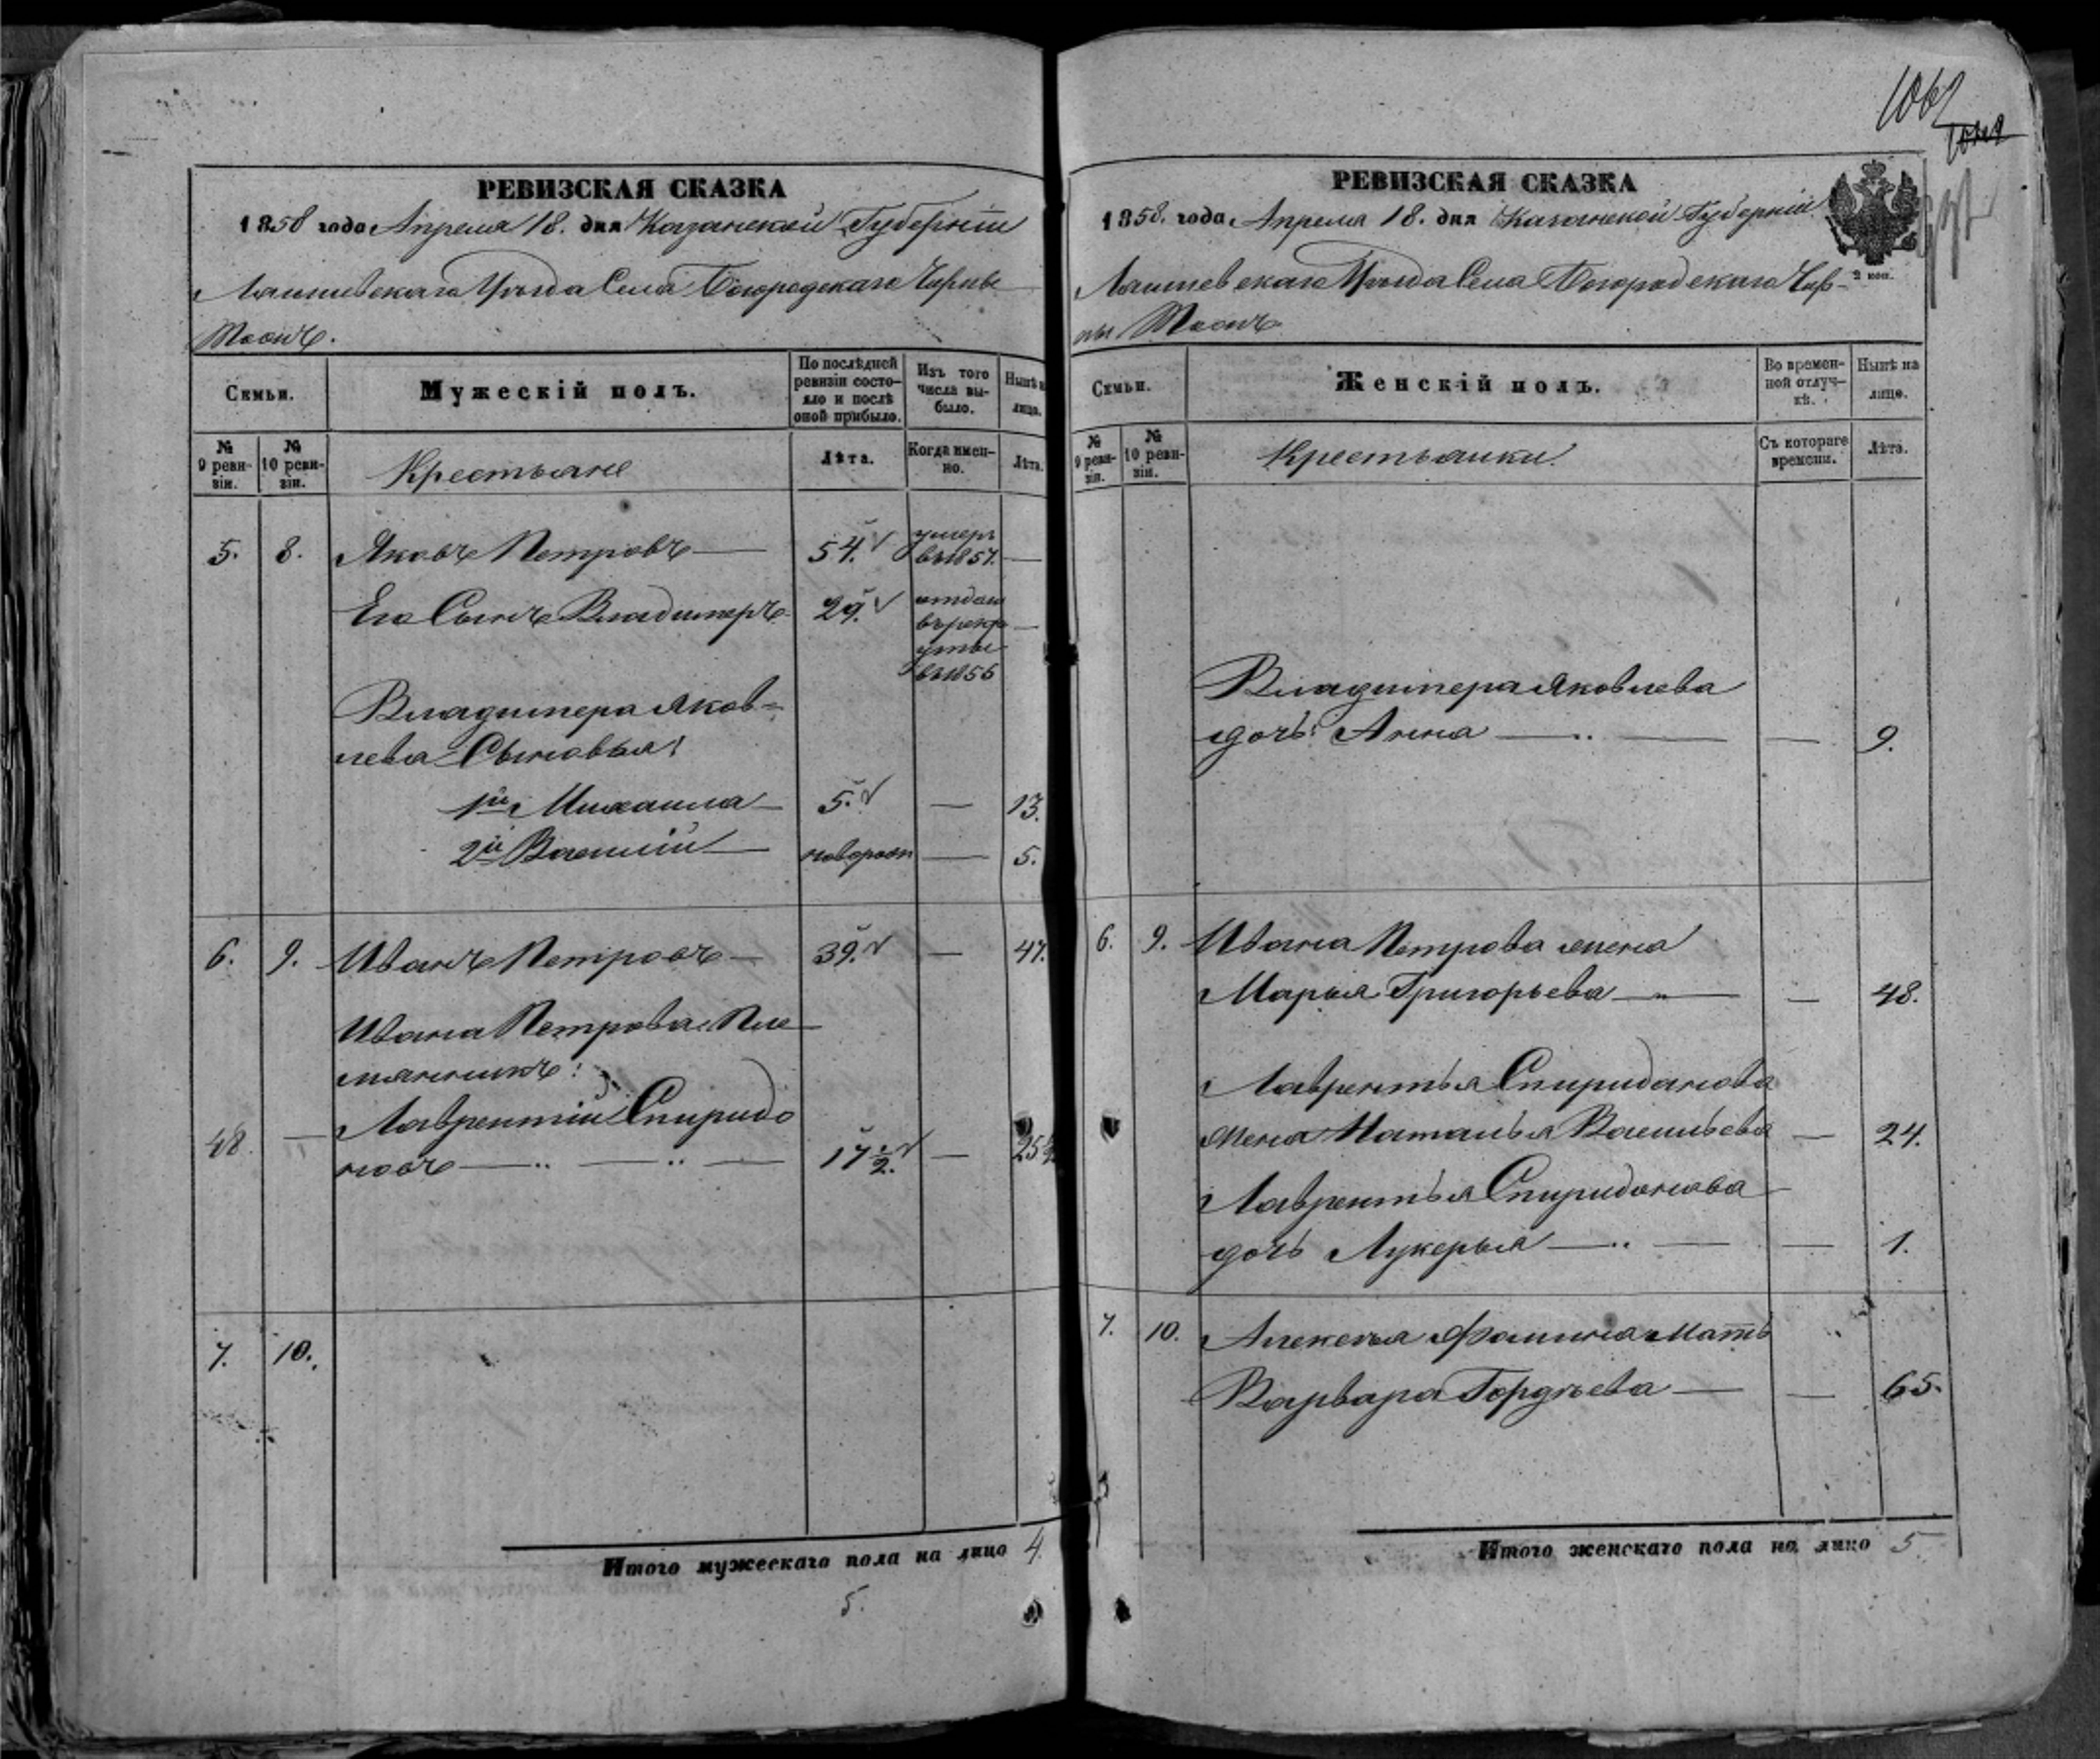 РЕВИЗСКАЯ СКАЗКА
1858 года Апреля 18. дня Казанской Губерніи
Лаишевскаго Уѣзда Села Богородскаго Черны
Тожъ.
Семьи.
Мужескій полъ.
По послѣдней ревизіи состояло и послѣ оной прибыло.
Изъ того числа выбыло.
Нынѣ на лицо.
№ 9 ревизіи.
№ 10 ревизіи.
Крестьяне
Лѣта.
Когда именно.
Лѣта.
5. 8. Яковъ Петровъ — 54. умеръ въ 1857. —
Его Сынъ Владимеръ 29. отдан въ рекруты въ 1855 —
Владимера Яков=
лева Сыновья:
1й Михаила — 5. — 13.
2й Василій — новорож — 5.
6. 9. Иванъ Петровъ — 39. — 47.
Ивана Петрова Пле
мянникъ:
48. — Лаврентій Спиридо
новъ — 17 1/2. — 25 1/2
7. 10.
Итого мужескаго пола на лицо 4.
5.
РЕВИЗСКАЯ СКАЗКА
1858. года Апреля 18. дня Казанской Губерніи
2 коп.
Лаишевскаго Уѣзда Села Богородскаго Чер-
ны Тожъ
Семьи.
Женскій полъ.
Во временной отлучкѣ.
Нынѣ на лицо.
№ 9 ревизіи.
№ 10 ревизіи.
Крестьянки.
Съ котораго времени.
Лѣта.
Владимера Яковлева
дочь: Анна — — 9.
6. 9. Ивана Петрова жена
Марья Григорьева — — 48.
Лаврентья Спиридонова
жена Наталья Васильева — 24.
Лаврентья Спиридонова
дочь Лукерья — — 1.
7. 10. Алексея Фомина Мать
Варвара Гордѣева — — 65.
Итого женскаго пола на лицо 5.